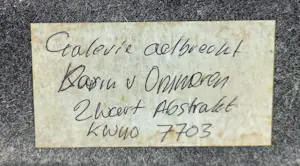 Galerie aelbrecht
Karin v Ommeren
Zwart Abstrakt
KW40 7703